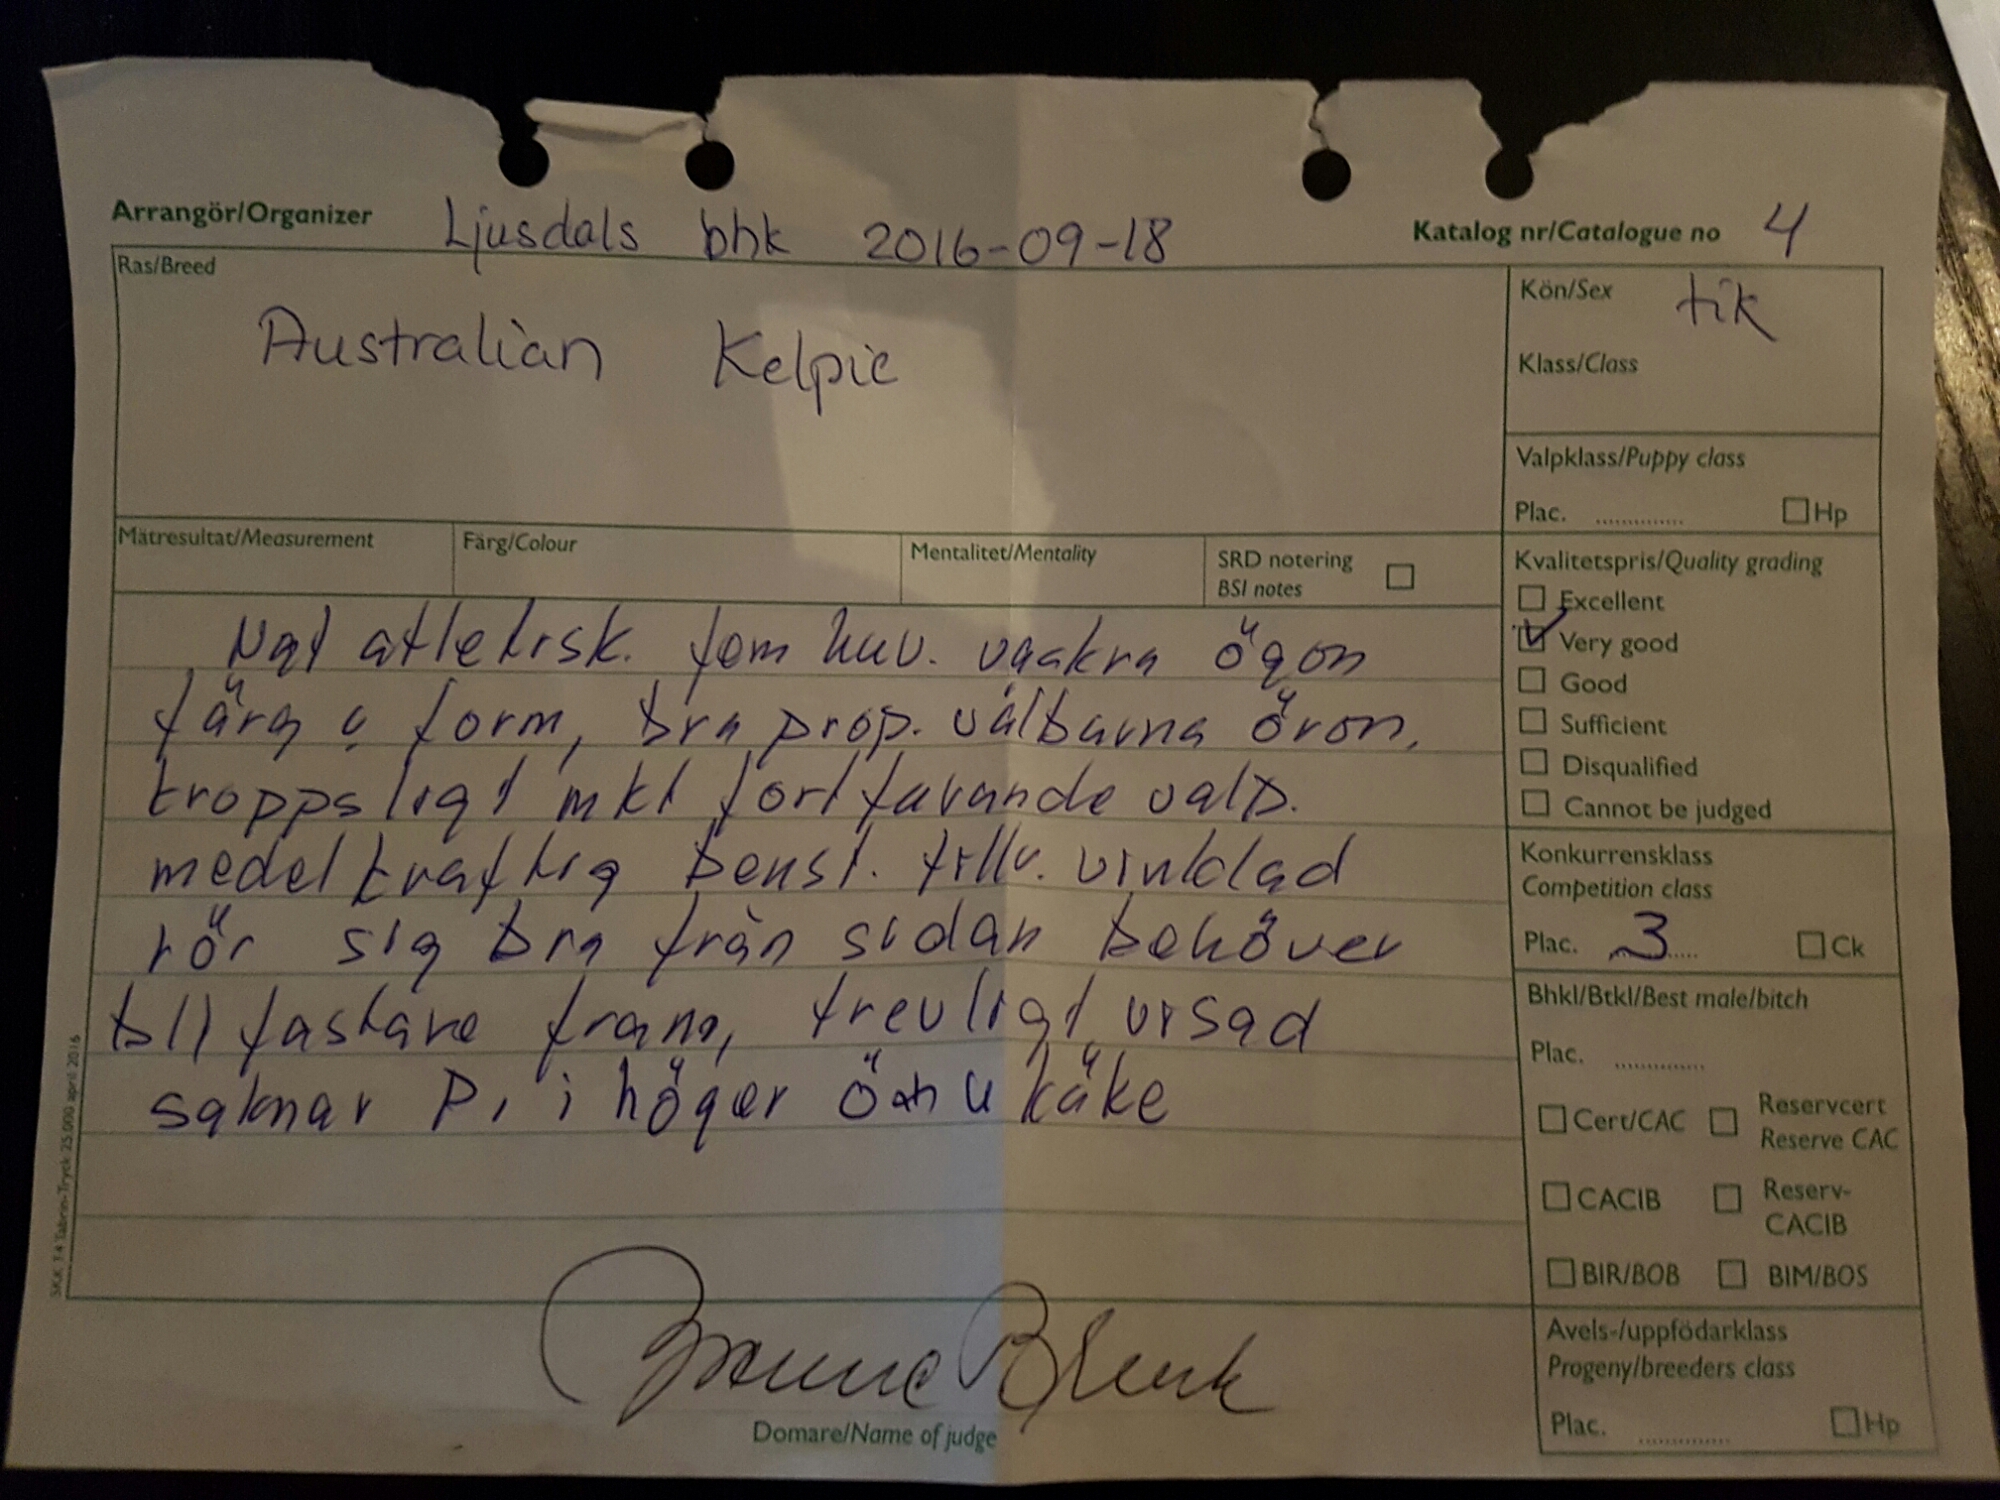 Arrangör/Organizer Ljusdals bhk 2016-09-18
Katalog nr/Catalogue no 4
Ras/Breed
Australian Kelpie
Kön/Sex tik
Klass/Class
Valpklass/Puppy class
Plac. .............. Hp
Mätresultat/Measurement
Färg/Colour
Mentalitet/Mentality
SRD notering
BSI notes
Någt atletisk. fem huv. vackra ögon
färg o form, bra prop. välburna öron,
kroppsligt mkt fortfarande valp.
medelkraftig benst. tillr. vinklad
rör sig bra från sidan behöver
bli fastare fram, trevligt visad
saknar P1 i höger ö och u käke
Kvalitetspris/Quality grading
Excellent
Very good
Good
Sufficient
Disqualified
Cannot be judged
Konkurrensklass
Competition class
Plac. 3 Ck
Bhkl/Btkl/Best male/bitch
Plac. ..............
Cert/CAC
Reservcert
Reserve CAC
CACIB
Reserv-
CACIB
BIR/BOB
BIM/BOS
Avels-/uppfödarklass
Progeny/breeders class
Plac. .............. Hp
Domare/Name of judge
SKK T4 Tabrin-Tryck 25.000 april 2016